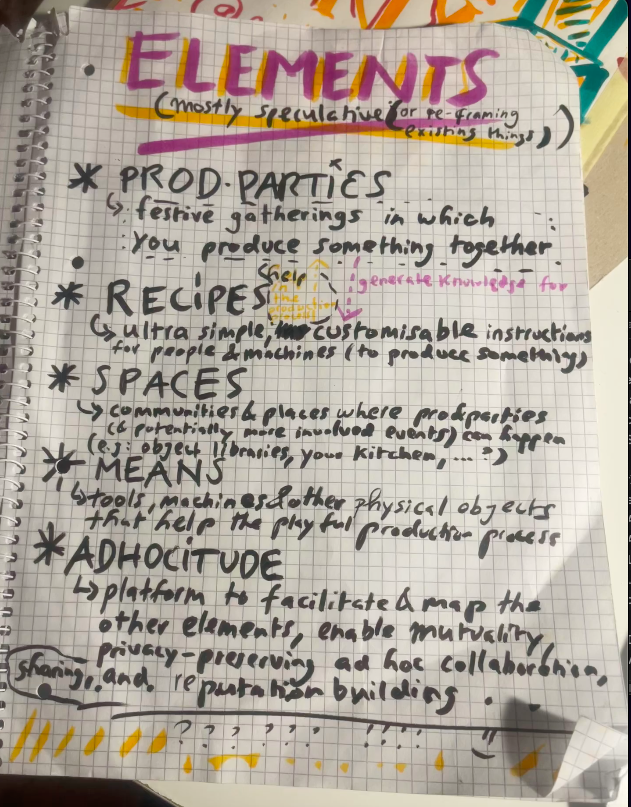 ELEMENTS
(mostly speculative (or re-framing
existing things))
* PROD·PARTIES
↳ festive gatherings in which
you produce something together.
help
in
the
production
process
generate knowledge for
* RECIPES
↳ ultra simple, customisable instructions
for people & machines (to produce something)
* SPACES
↳ communities & places where prodparties
(& potentially more involved events) can happen
(e.g: object libraries, your kitchen, ...?)
* MEANS
↳ tools, machines & other physical objects
that help the playful production process
* ADHOCITUDE
↳ platform to facilitate & map the
other elements, enable mutuality,
privacy-preserving ad hoc collaboration,
sharing, and reputation building.
? ? ? ? ? ? ! ! ! !